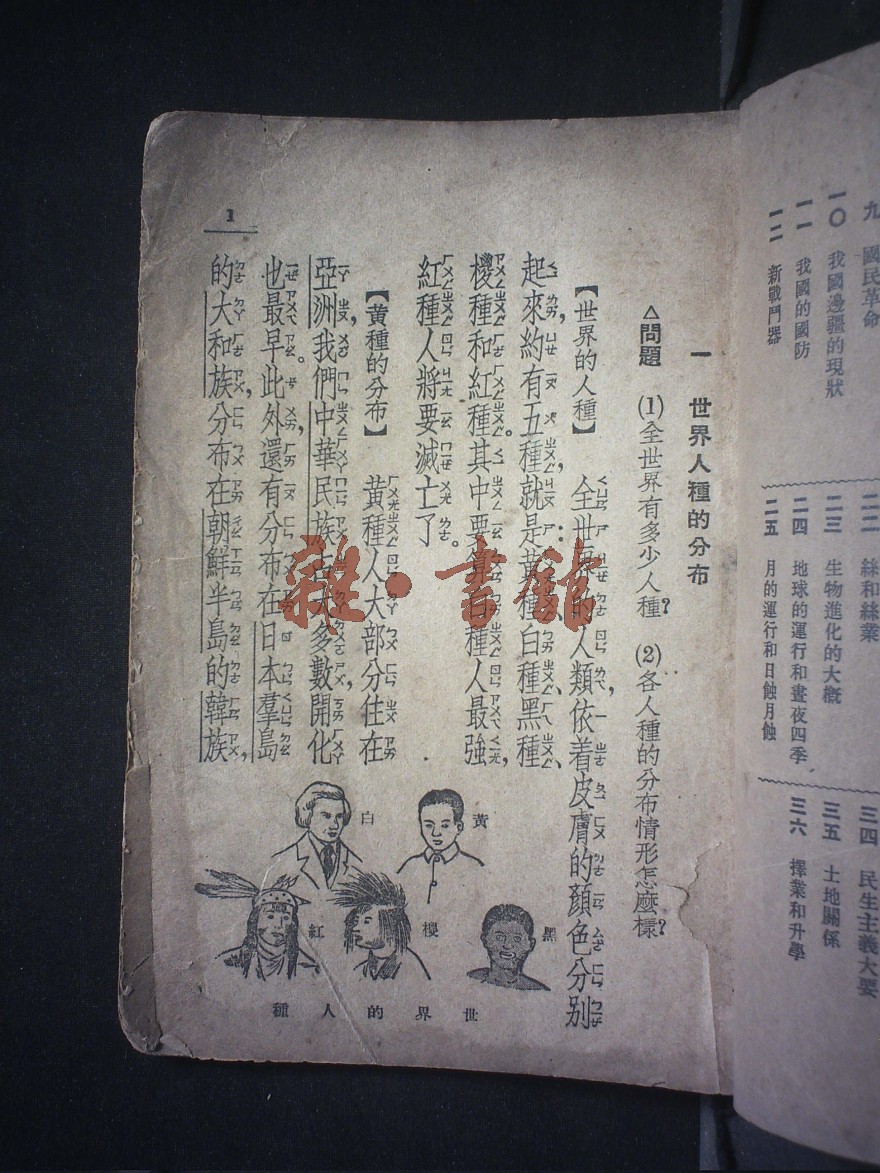 九 國民革命
一〇 我國邊疆的現狀
一一 我國的國防
一二 新戰鬥器
二二 絲和絲業
二三 生物進化的大概
二四 地球的運行和晝夜四季
二五 月的運行和日蝕月蝕
三四 民生主義大要
三五 土地關係
三六 擇業和升學
一 世界人種的分布
△問題 (1)全世界有多少人種？ (2)各人種的分布情形怎麼樣？
【世界的人種】 全世界的人類，依着皮膚的顏色分別
起來，約有五種，就是：黃種、白種、黑種、
椶種和紅種。其中要算白種人最強，
紅種人將要滅亡了。
【黃種的分布】 黃種人大部分住在
亞洲，我們中華民族占大多數，開化
也最早。此外，還有分布在日本羣島
的大和族，分布在朝鮮半島的韓族，
1
黃
白
黑
椶
紅
世界的人種
雜·書館